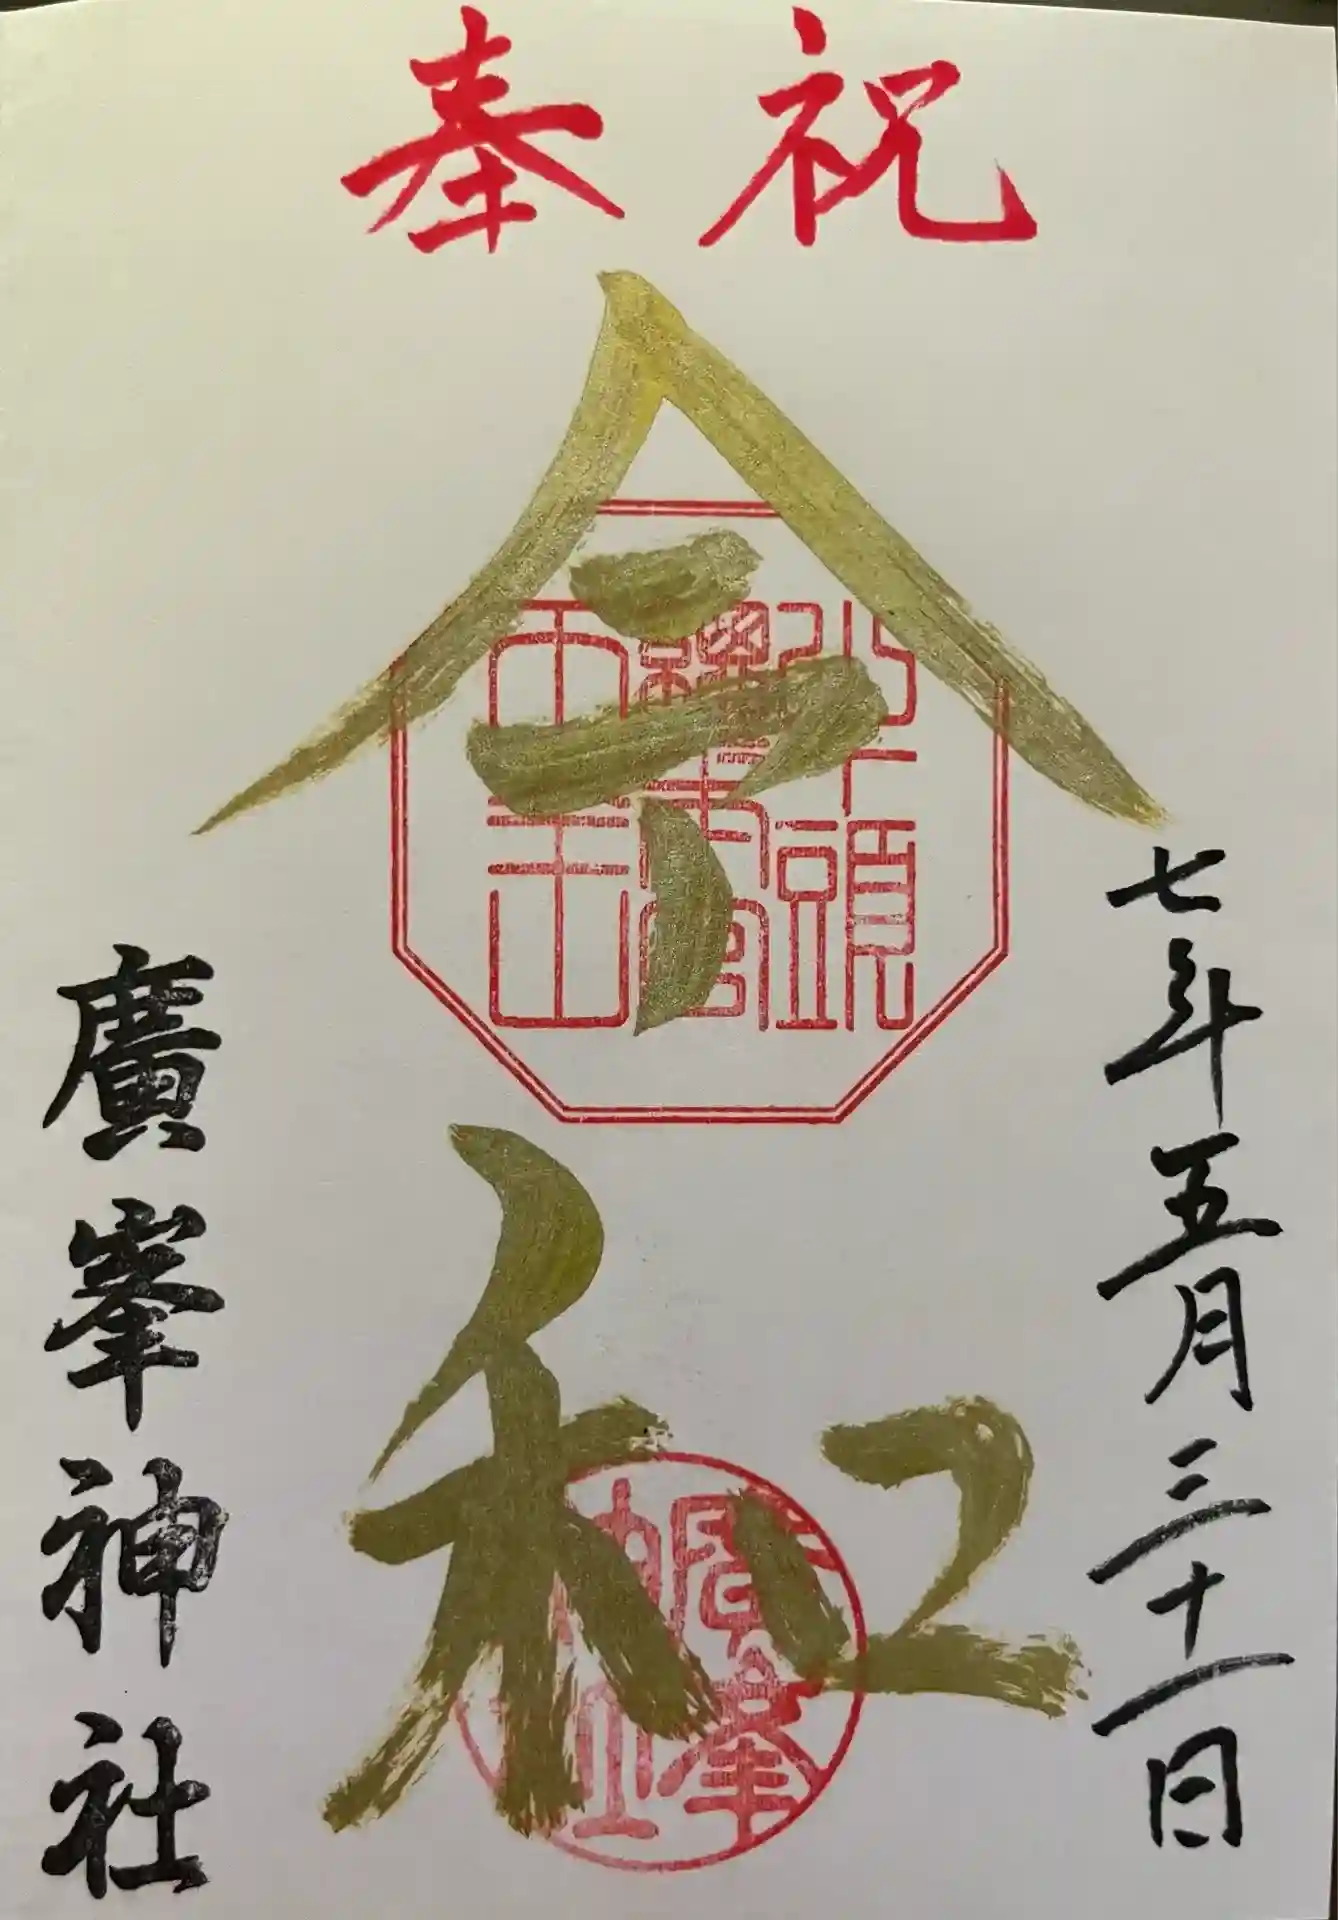 奉祝
令和
七年五月三十一日
廣峯神社
廣峯